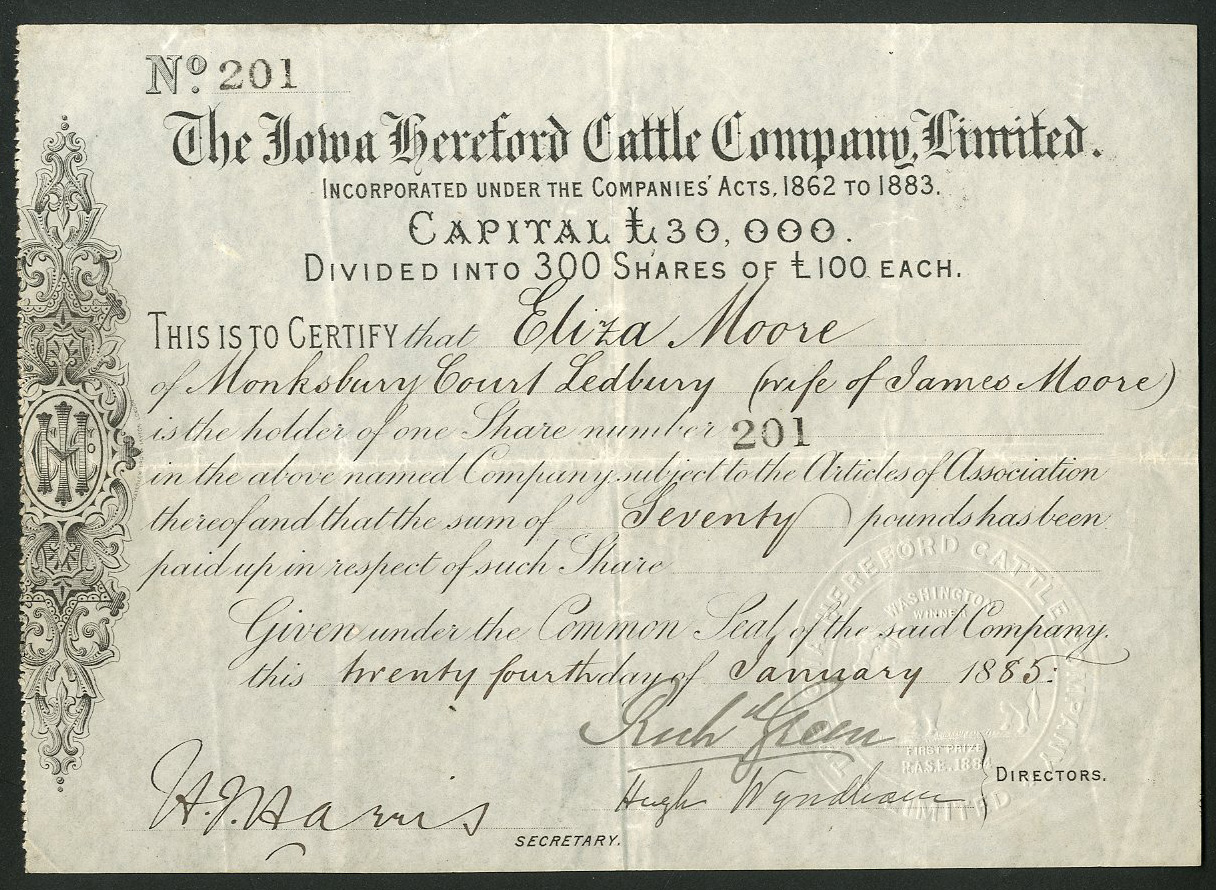 No. 201
The Iowa Hereford Cattle Company, Limited.
INCORPORATED UNDER THE COMPANIES' ACTS, 1862 TO 1883.
CAPITAL £30,000.
DIVIDED INTO 300 SHARES OF £100 EACH.
THIS IS TO CERTIFY that Eliza Moore
of Monksbury Court Ledbury (wife of James Moore)
is the holder of one Share number 201
in the above named Company subject to the Articles of Association
thereof and that the sum of Seventy pounds has been
paid up in respect of such Share
Given under the Common Seal of the said Company.
this twenty fourth day of January 1885:
Richd Green
Hugh Wyndham
DIRECTORS.
H.J. Harris
SECRETARY.
HEREFORD CATTLE COMPANY LIMITED
WASHINGTON
WINNER
FIRST PRIZE
R.A.S.E. 1884